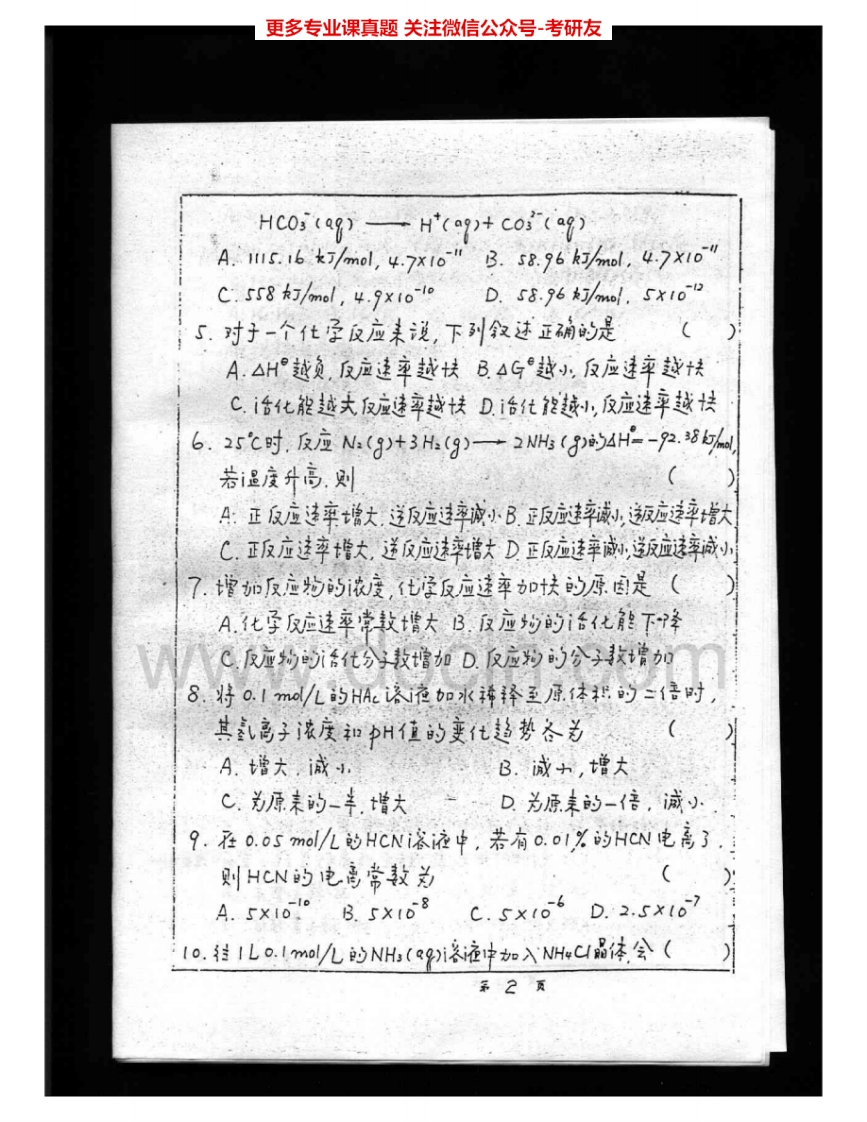 更多专业课真题 关注微信公众号-考研友
HCO₃⁻(aq) ⟶ H⁺(aq)+ CO₃²⁻(aq)
A. 1115.16 kJ/mol, 4.7×10⁻¹¹ B. 58.96 kJ/mol, 4.7×10⁻¹¹
C. 558 kJ/mol, 4.9×10⁻¹⁰ D. 58.96 kJ/mol, 5×10⁻¹²
5. 对于一个化学反应来说,下列叙述正确的是 ( )
A. ΔH°越负,反应速率越快 B. ΔG°越小,反应速率越快
C. 活化能越大反应速率越快 D. 活化能越小,反应速率越快
6. 25℃时,反应 N₂(g)+3H₂(g) ⟶ 2NH₃(g)的ΔH°=-92.38 kJ/mol,
若温度升高,则 ( )
A. 正反应速率增大,逆反应速率减小 B. 正反应速率减小,逆反应速率增大
C. 正反应速率增大,逆反应速率增大 D. 正反应速率减小,逆反应速率减小
7. 增加反应物的浓度,化学反应速率加快的原因是 ( )
A. 化学反应速率常数增大 B. 反应物的活化能下降
C. 反应物的活化分子数增加 D. 反应物的分子数增加
8. 将 0.1 mol/L 的HAc溶液加水稀释至原体积的二倍时,
其氢离子浓度和pH值的变化趋势各为 ( )
A. 增大,减小 B. 减小,增大
C. 为原来的一半,增大 D. 为原来的一倍,减小
9. 在 0.05 mol/L 的HCN溶液中,若有0.01%的HCN电离了,
则HCN的电离常数为 ( )
A. 5×10⁻¹⁰ B. 5×10⁻⁸ C. 5×10⁻⁶ D. 2.5×10⁻⁷
10. 往 1L 0.1mol/L 的NH₃(aq)溶液中加入NH₄Cl晶体,会 ( )
第 2 页